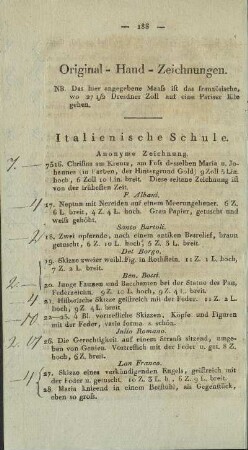 — 188 —
Original - Hand - Zeichnungen.
NB. Das hier angegebene Maass ist das französische,
wo 27 Dresdner Zoll auf eine Pariser Elle
gehen.
Italienische Schule.
Anonyme Zeichnung.
7516. Christus am Kreuz, am Fuss desselben Maria u. Jo-
hannes (in Farben, der Hintergrund Gold) 9 Zoll 5 Lin.
hoch, 6 Zoll 10 Lin. breit. Diese seltene Zeichnung ist
von der frühesten Zeit.
F. Albani.
17. Neptun mit Nereiden auf einem Meerungeheuer. 6 Z.
6 L. breit, 4 Z. 4 L. hoch. Grau Papier, getuscht und
weiss gehöht.
Santo Bartoli.
18. Zwei opfernde, nach einem antiken Basrelief, braun
getuscht, 6 Z. 10 L. hoch, 5 Z. 5 L. breit.
Del Borgo.
19. Skizze zweier weibl. Fig. in Rothstein. 11 Z. 1 L. hoch,
7 Z. L. breit.
Ben. Bossi.
20. Junge Faunen und Bacchanten bei der Statue des Pan,
Federzeichnung. 9 Z. L. hoch, L. breit.
21. Historische Skizze geistreich mit der Feder. 11 Z. 2 L.
hoch, 9 Z. L. breit.
22—25. 4 Bl. vortreffliche Skizzen, Köpfe und Figuren
mit der Feder, verte forma. s. schön.
Julio Romano.
26. Die Gerechtigkeit auf einem Strauss sitzend, umge-
ben von Genien. Vortrefflich mit der Feder u. get. 8 Z.
hoch, 6 breit.
Lan Franco.
27. Skizze eines verkündigenden Engels, geistreich mit
der Feder u. getuscht. 10 Z. 3 L. h., 6 Z. 5 L. breit.
28. Maria knieend in einem Betstuhl, als Gegenstück,
eben so gross.